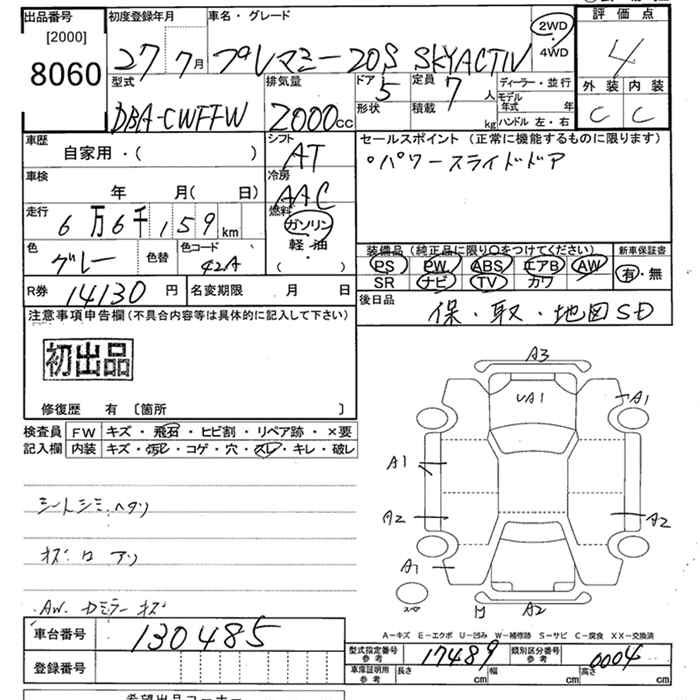 出品番号 初度登録年月 車名・グレード 評価点
[2000]
8060
27 7月 プレマシー20S SKYACTIV 2WD 4WD 4
型式 排気量 ドア 定員 ディーラー・並行 外装 内装
DBA-CWFFW 2000cc 5 7人 モデル年式 年 C C
形状 積載 kg ハンドル 左・右
車歴 シフト セールスポイント(正常に機能するものに限ります)
自家用・( ) AT 。パワースライドドア
車検 冷房
年 月(日) AAC
走行 燃料
6万6千159km ガソリン
軽・油
・
( )
色 色替 色コード 装備品(純正品に限り○をつけてください) 新車保証書
グレー 42A PS PW ABS エアB AW 有・無
SR ナビ TV カワ
R券 14130円 名変期限 月 日 後日品
保・取・地図SD
注意事項申告欄(不具合内容等は具体的に記入して下さい)
初出品
修復歴 有 〔箇所 〕
検査員 FW キズ・飛石・ヒビ割・リペア跡・×要
記入欄 内装 キズ・汚レ・コゲ・穴・スレ・キレ・破レ
A3
A1
A1
A1
A2
A2
A2
シートシミ.ヘタリ
AW.
A-キズ E-エクボ U-凹み W-補修跡 S-サビ C-腐食 XX-交換済
車台番号 130485
登録番号
型式指定番号 参考 17489 類別区分番号 参考 0004
車庫証明用 参考 長さ cm 幅 cm 高さ cm